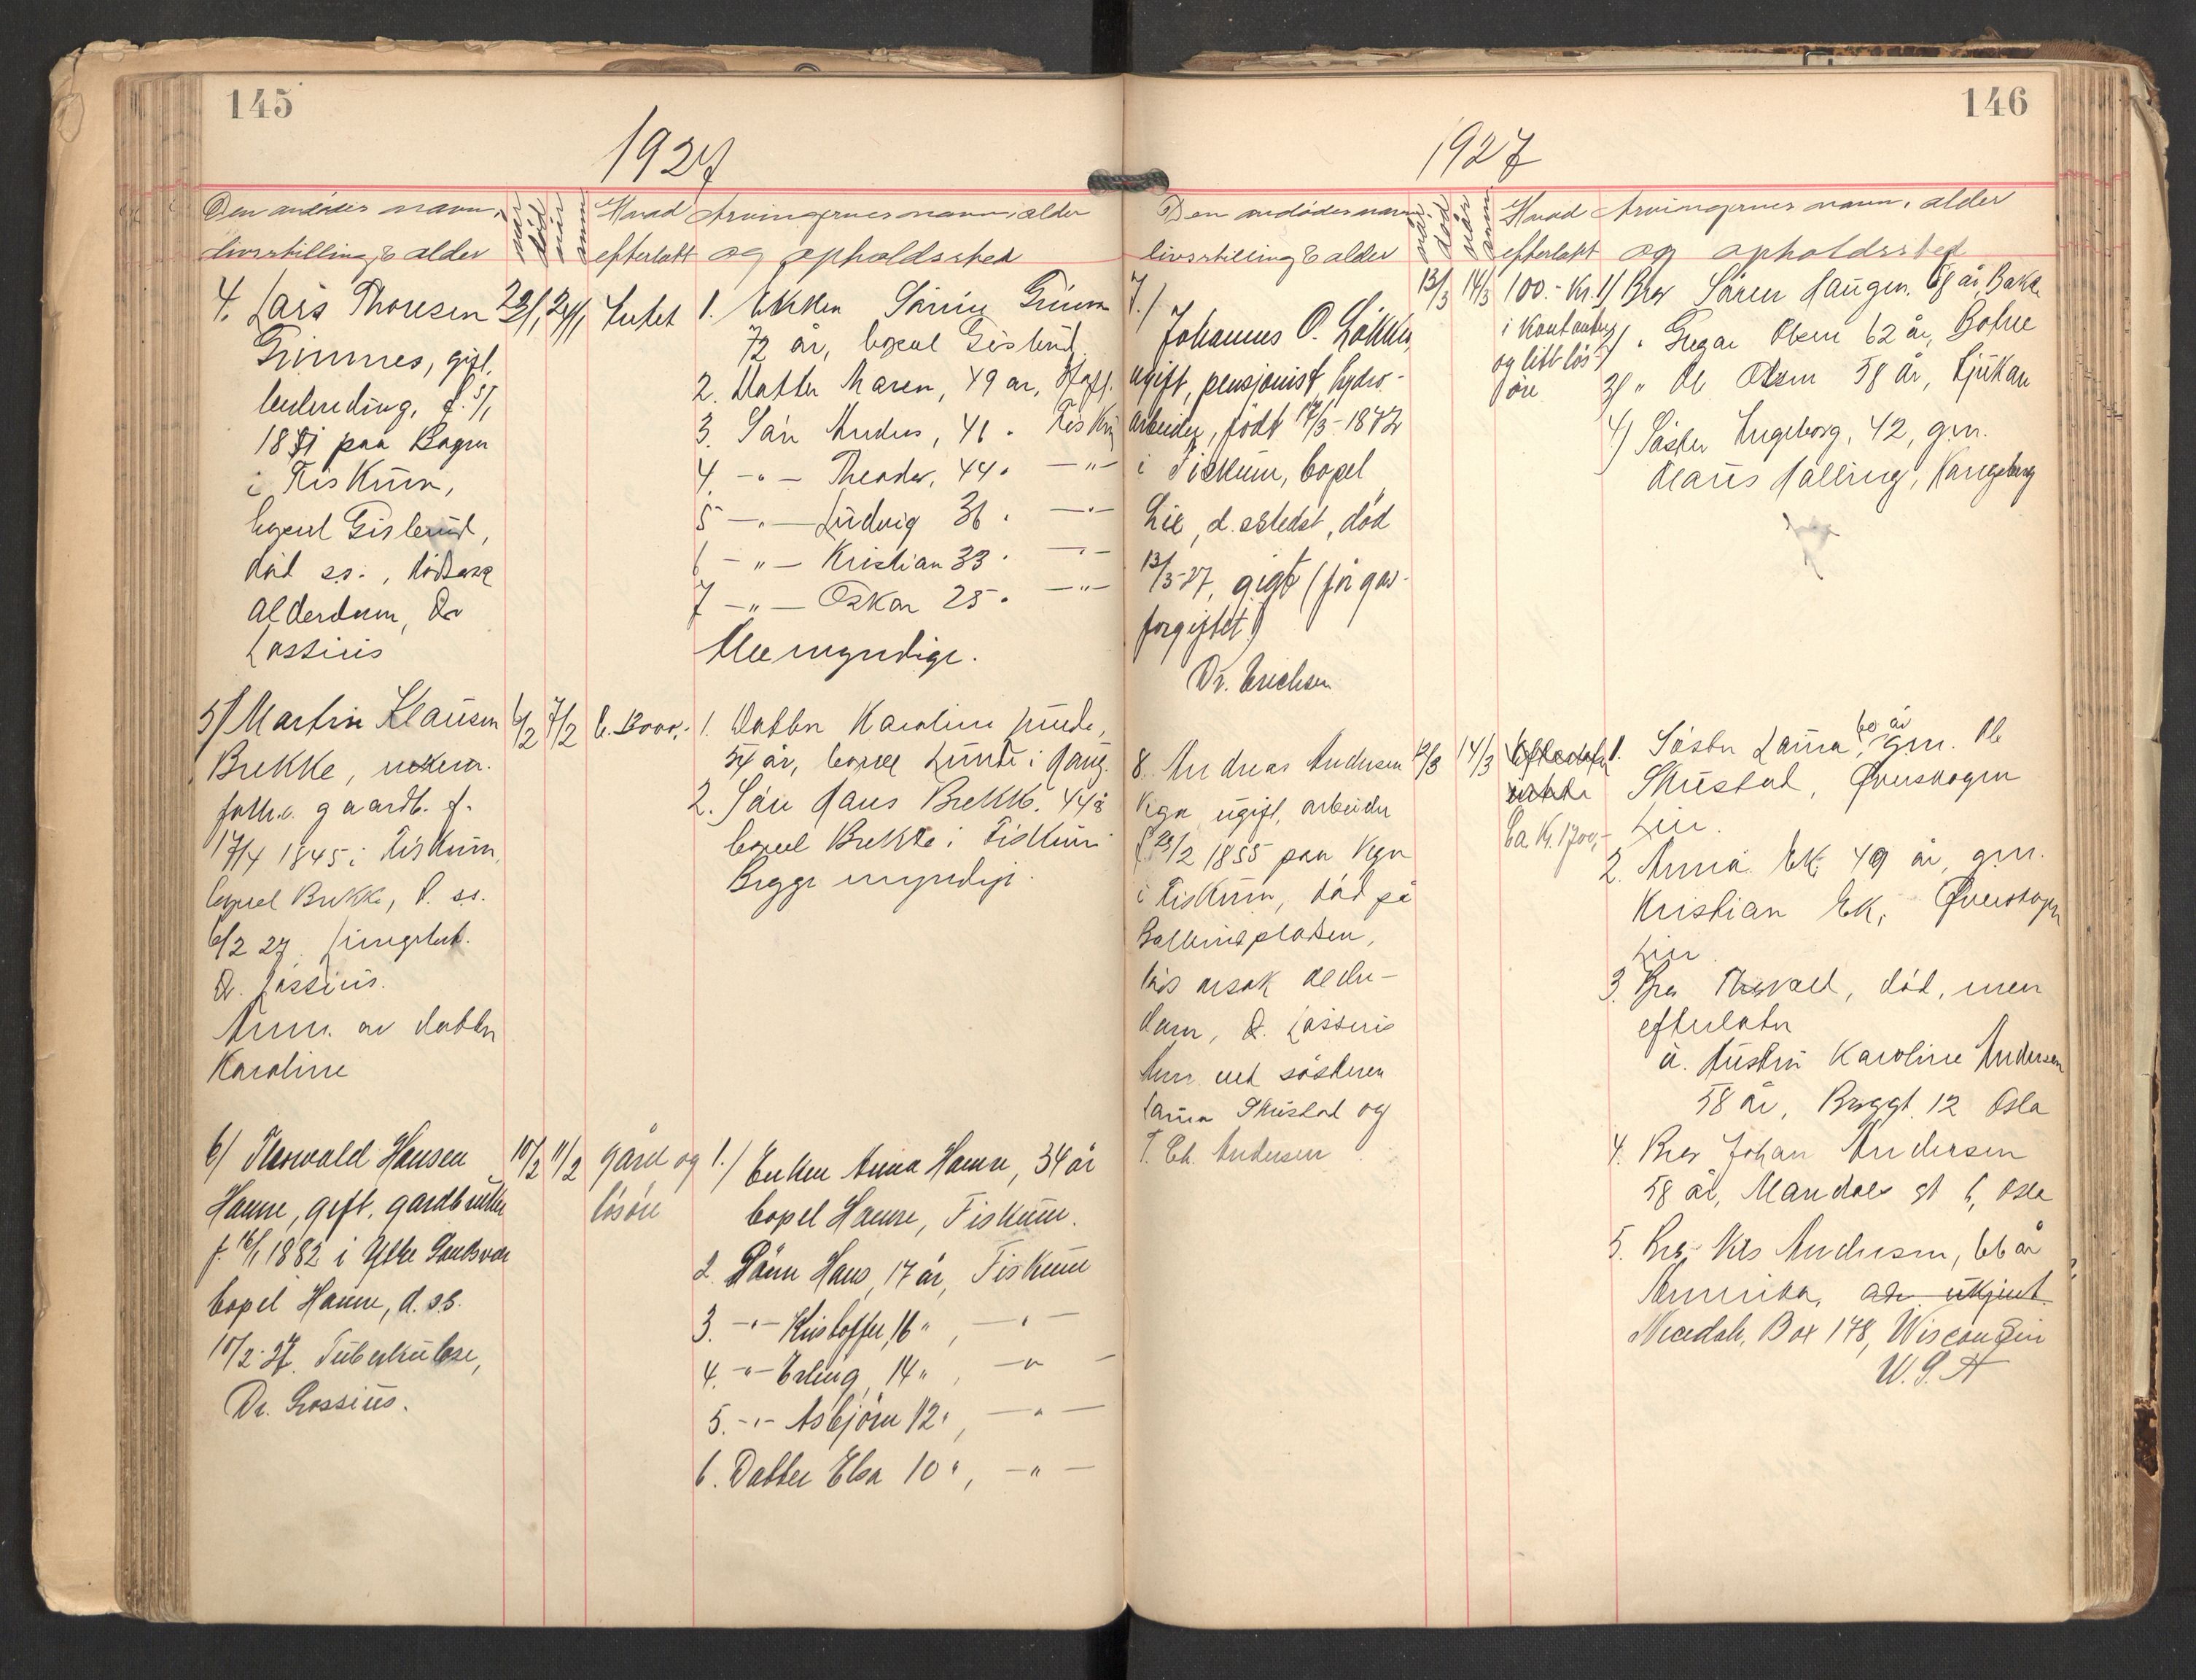 145
1927
Den avdødes navn,
livsstilling & alder
når død
når anm
Hvad
efterlatt
Arvingernes navn, alder
og opholdssted
4. Lars Thoresen
Grimnes, gift,
f. 5/1
18 paa Bagen
i Fiskum,
bopæl Gislerud,
død s.s., dødsårs.
Alderdom, Dr
Lassius
22/1
24/1
Intet
1. Enken Sørine Grimn
72 år, bopæl Gislerud
2. Datter Maren, 49 år,
3. Søn Anders, 41 " Fiskum
4. -"- Theodor, 44 " -"-
5 -"- Ludvig 36 " -"-
6 -"- Kristian 33 " -"-
7 -"- Oskar 25 " -"-
Alle myndige.
5/ Martin Klausen
Brekke, enkem.
forh.v. gaardb. f.
17/4 1845 i Fiskum,
bopæl Brekke, d. s.s.
6/2 27. Lungebet.
Dr. Lassius.
Anm. av datter
Karoline
6/2
7/2
1. Datter Karoline Lunde,
54 år, bopæl Lunde i Haug.
2. Søn Hans Brekke. 44 å
bopæl Brekke i Fiskum
Begge myndige.
6/ Thorvald Hansen
Hamre, gift, gardbruker
f. 16/1 1882 i Ytre Sandsvær
bopel Hamre, d. s.s.
10/2-27. Tuberkulose,
Dr. Lassius.
10/2
11/2
gård og
løsøre
1./ Enken Anna Hamre, 34 år
bopel Hamre, Fiskum.
2. Sønn Hans, 17 år, Fiskum
3. -"- Kristoffer, 16 ", -"-
4. -"- Erling, 14 ", -"-
5. -"- Asbjørn 12 ", -"-
6. Datter Elsa 10 ", -"-
146
1927
Den avdødes navn
livsstilling & alder
når død
når anm
Hvad
efterlatt
Arvingernes navn, alder
og opholdssted
7./
Johannes O. Løkken,
ugift, pensjonist, hydro-
arbeider, født 17/3-1872
i Fiskum, bopel
Lie, d. s. stedet, død
13/3-27, gigt (før gas-
forgiftet)
Dr. Erichsen
13/3
14/3
100.- Kr.
i kontanter
og litt løs-
øre
1/ Bror Søren Haugen. 68 år, Bakke
2/ " Gregar Olsen 62 år, Botne
3/ " Ole Olsen 58 år, Rjukan
4/ Søster Ingeborg, 42, g.m.
Klaus Halling, Kongsberg
8. Andreas Andersen
ugift, arbeider
f. 1855 paa
i Fiskum, død på
døds årsak alder-
dom, Dr. Lassius
Anm. ved søsteren
Laura Skustad og
T. Chr. Andersen
12/3
14/3
Ca Kr. 1700,-
1. Søster Laura, 60 år g.m. Ole
Skustad, Øverskogen
Lier.
2. Anna Ek. 49 år, g.m.
Kristian Ek, Øverskogen
Lier
3. Bror Thorvald, død, men
efterlater
a. Hustru Karoline Andersen
58 år, Byggt. 12 Oslo
4. Bror Johan Andersen
58 år, Mandals gt 6, Oslo
5. Bror Nils Andersen, 66 år
Amerika, adr. ukjent.
Necedah, Box 178, Wisconsin
U.S.A